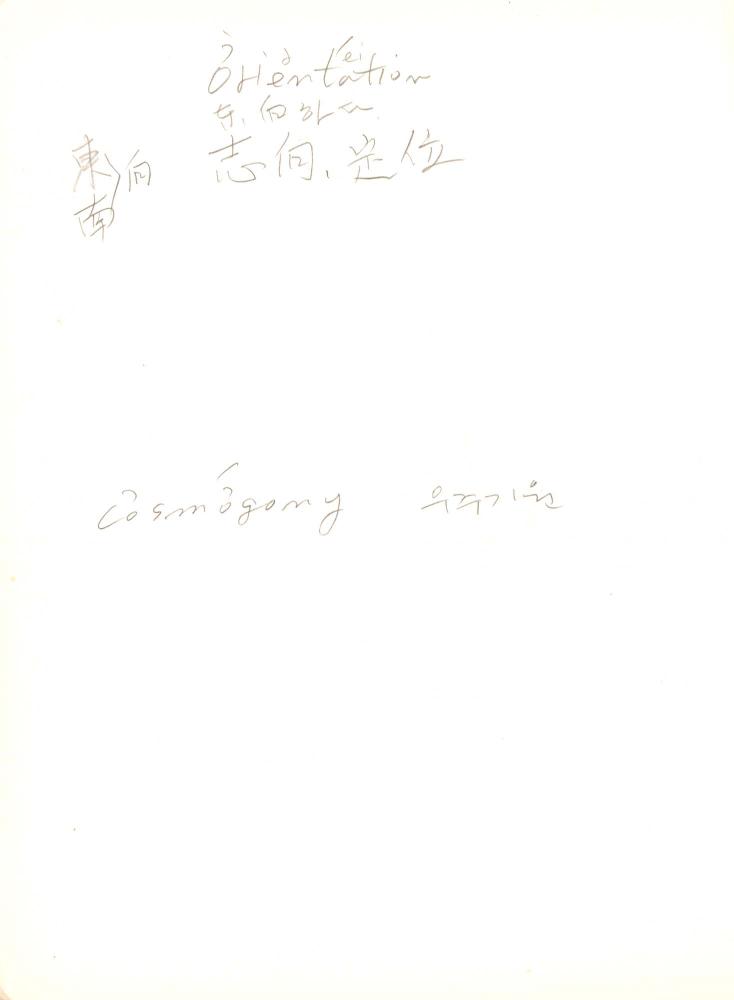 Orientation
東
南
向
志向, 定位
Cosmogony 우주기원